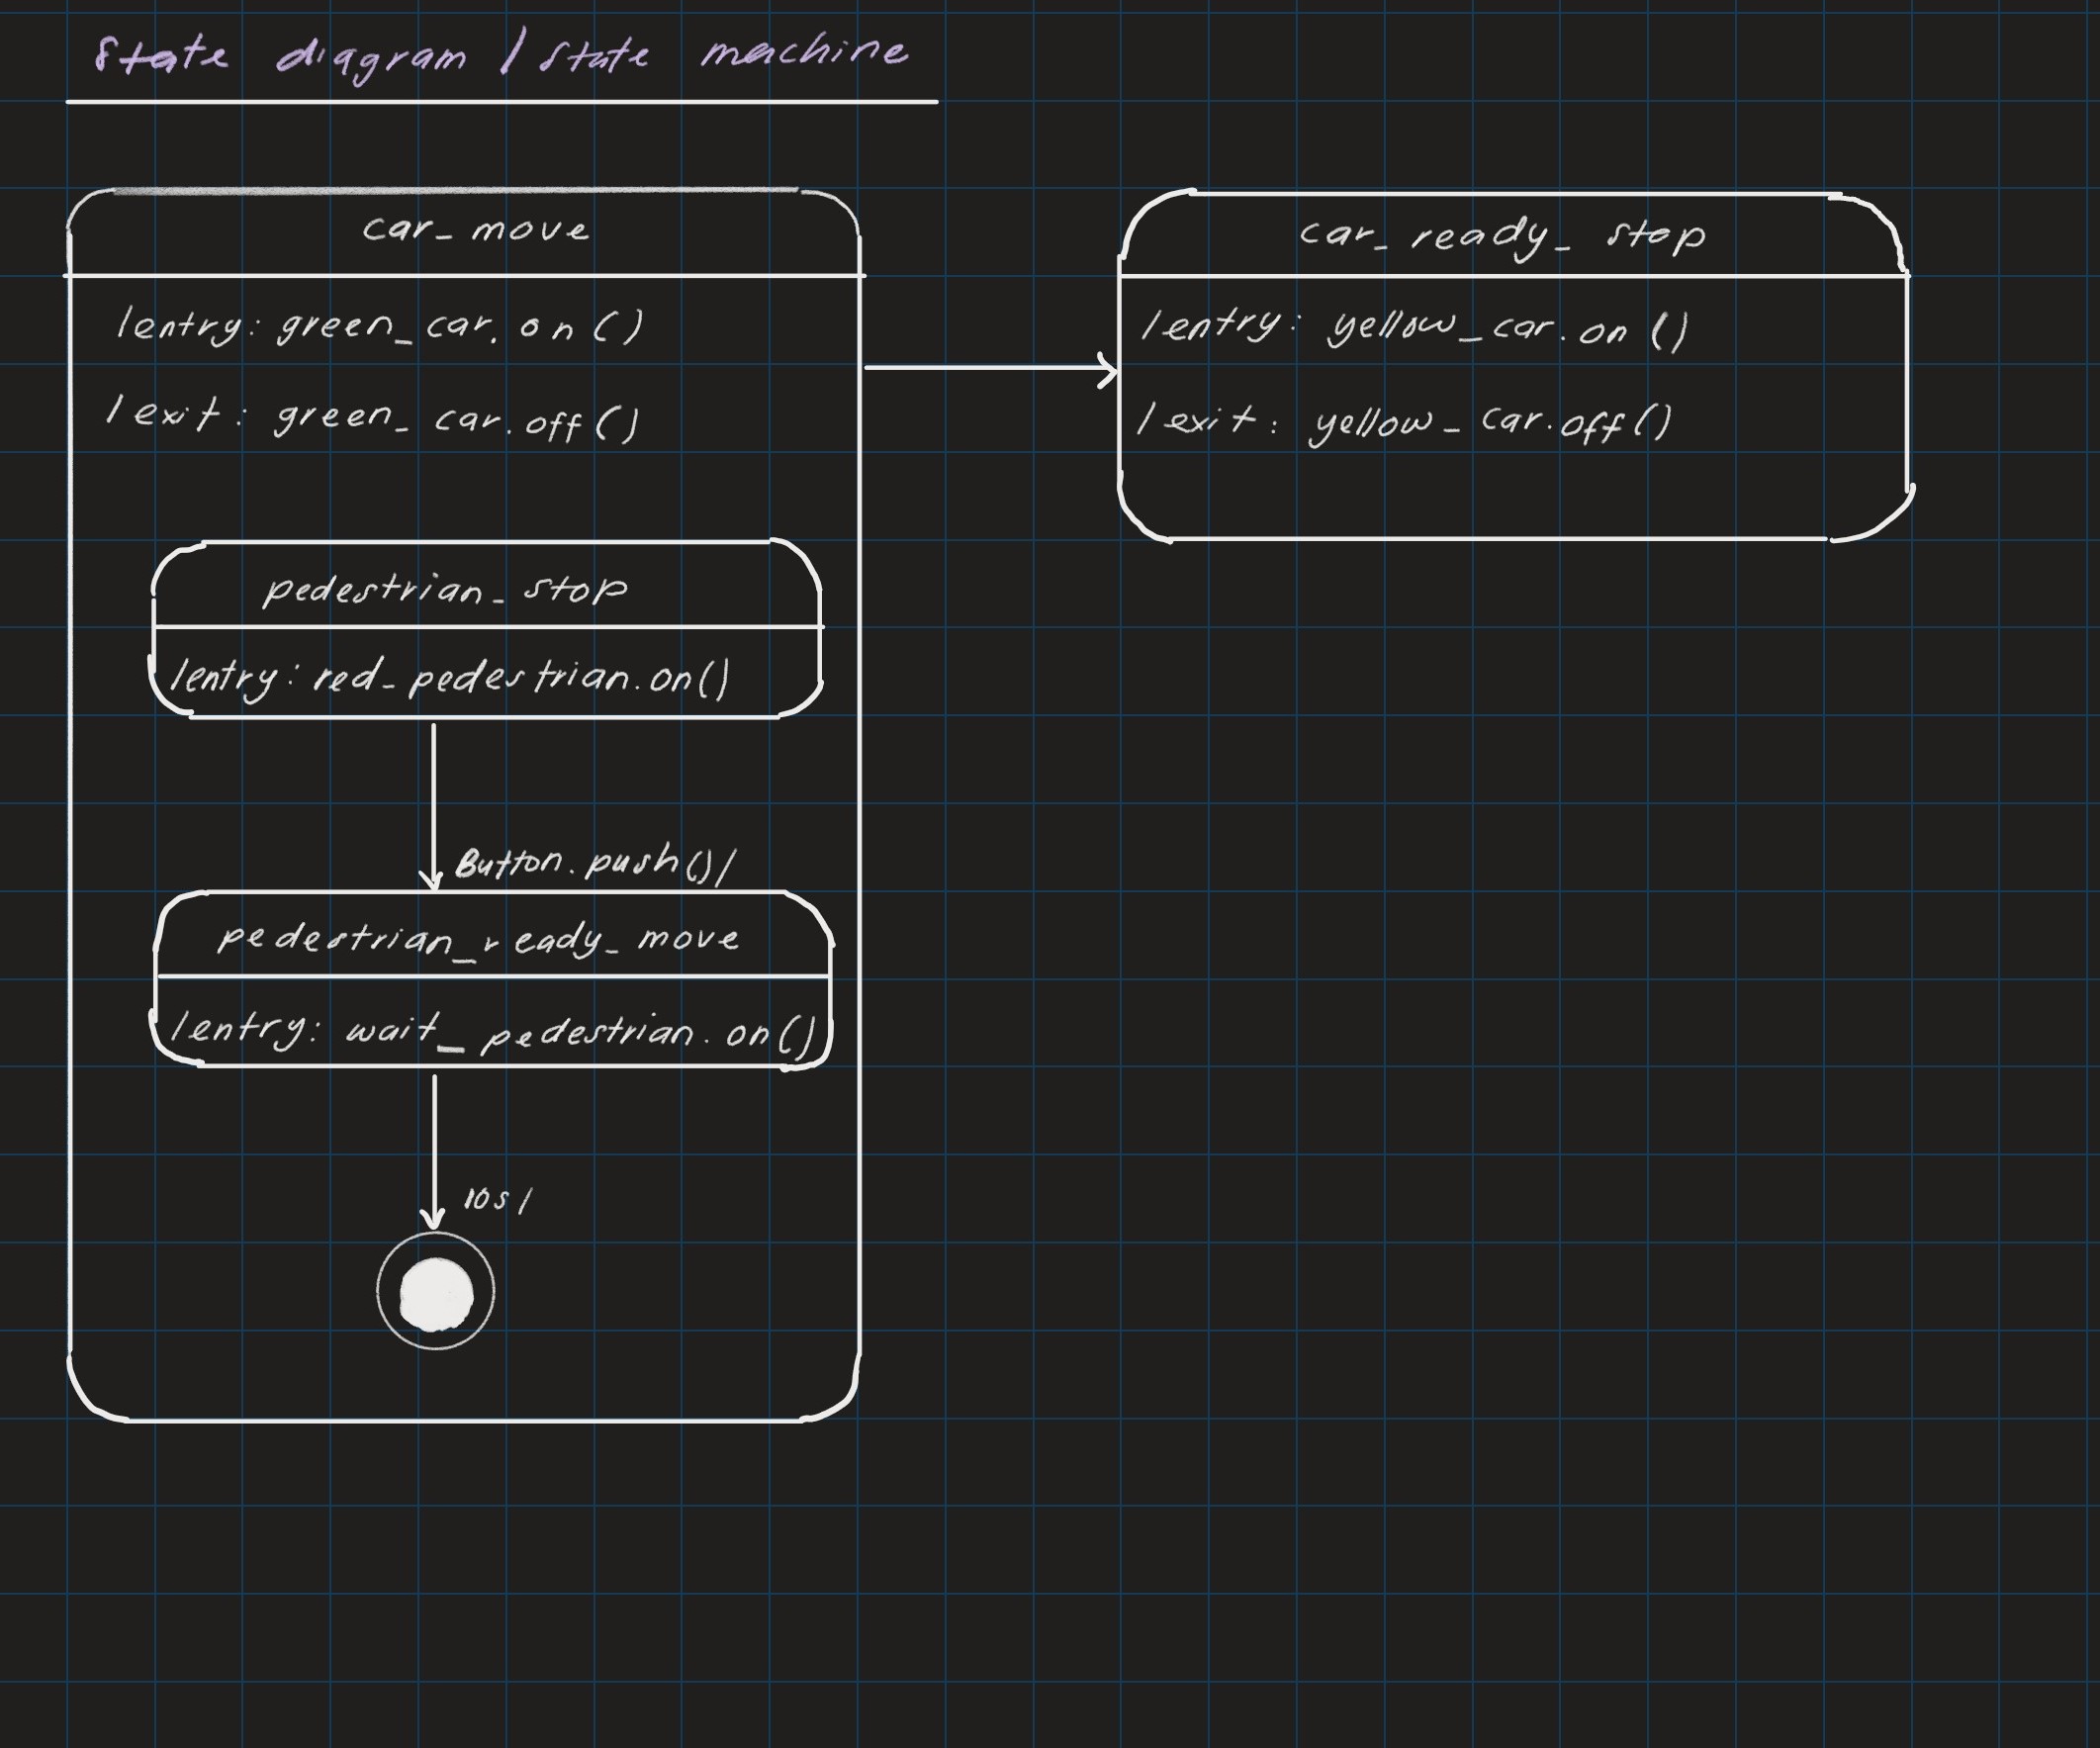 State diagram / State machine
car_move
/entry: green_car.on()
/exit: green_car.off()
pedestrian_stop
/entry: red_pedestrian.on()
Button.push()/
pedestrian_ready_move
/entry: wait_pedestrian.on()
10s/
car_ready_stop
/entry: yellow_car.on()
/exit: yellow_car.off()